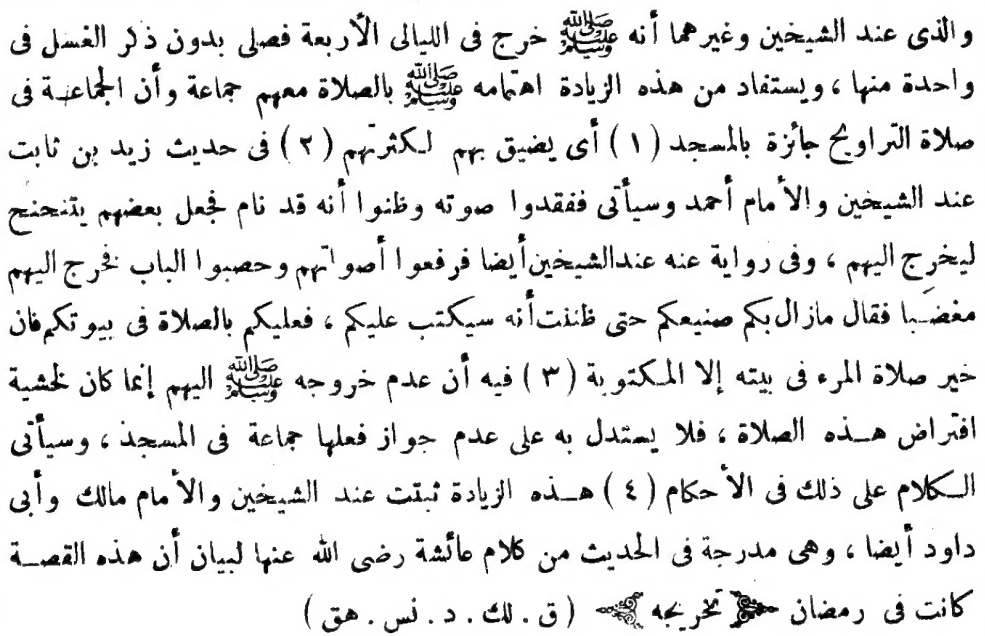 والذى عند الشيخين وغيرهما أنه ﷺ خرج فى الليالى الأربعة فصلى بدون ذكر الغسل فى
واحدة منها ، ويستفاد من هذه الزيادة اهتمامه ﷺ بالصلاة معهم جماعة وأن الجماعـة فى
صلاة التراويح جائزة بالمسجد (١) أى يضيق بهم لـكثرتهم (٢) فى حديث زيد بن ثابت
عند الشيخين والأمام أحمد وسيأتى ففقدوا صوته وظنوا أنه قد نام فجعل بعضهم يتنحنح
ليخرج اليهم ، وفى رواية عنه عند الشيخين أيضا فرفعوا أصواتهم وحصبوا الباب فخرج اليهم
مغضـبا فقال مازال بكم صنيعكم حتى ظننت أنه سيكتب عليكم ، فعليكم بالصلاة فى بيوتكم فان
خير صلاة المرء فى بيته إلا المـكتوبة (٣) فيه أن عدم خروجه ﷺ اليهم إنما كان لخشية
افتراض هـــذه الصلاة ، فلا يستدل به على عدم جواز فعلها جماعة فى المسجد ، وسيأتى
الـــكلام على ذلك فى الأحكام (٤) هـــذه الزيادة ثبتت عند الشيخين والأمام مالك وأبى
داود أيضا ، وهى مدرجة فى الحديث من كلام عائشة رضى الله عنها لبيان أن هذه القصـــة
كانت فى رمضان تخريجه (ق . لك . د . نس . هق)